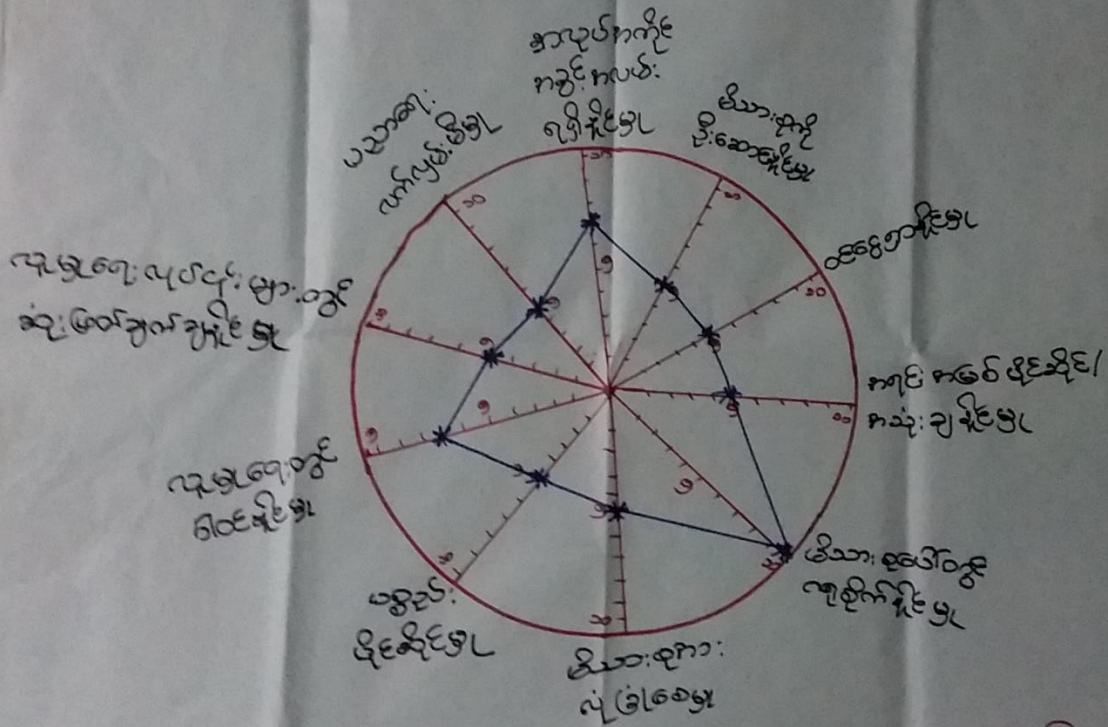 အလုပ်အကိုင်
အခွင့်အလမ်း
ရရှိနိုင်မှု
မိသားစုကို
ဦးဆောင်နိုင်မှု
ဝင်ငွေရှာနိုင်မှု
အရင်းအမြစ်ပိုင်ဆိုင်/
အသုံးချနိုင်မှု
မိသားစုပေါ်တွင်
လုပိုက်နိုင်မှု
မိသားစုအား
လုံခြုံစေမှု
ပစ္စည်း
ပိုင်ဆိုင်မှု
လူမှုရေးတွင်
ပါဝင်နိုင်မှု
လူမှုရေးလုပ်ငန်းများတွင်
ဆုံးဖြတ်ချက်ချနိုင်မှု
ပညာရေး
လက်လှမ်းမီမှု
၁၀
၅